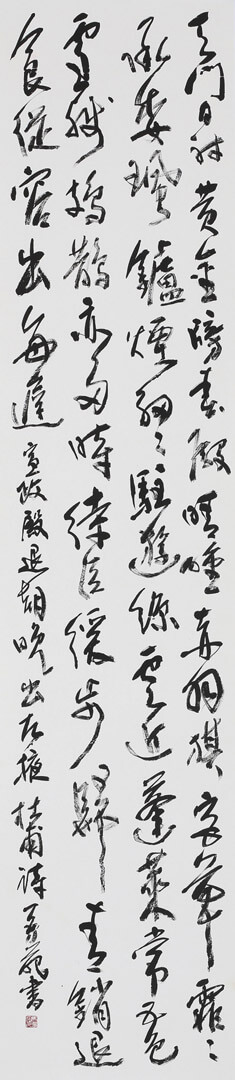 天門日射黄金牓春殿晴曛赤羽旗宮草霏〻
承委珮鑪煙細〻駐遊絲雲近蓬萊常五色
雪殘鳷鵲亦多時侍臣緩步歸青鎖退
食從容出每遲 宣政殿退朝晚出左掖 杜甫詩 書